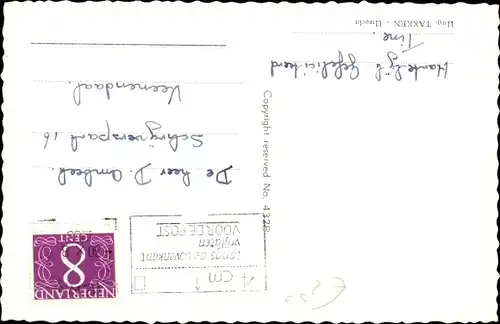 Hartelijk Gefeliciteerd
Tine.
Uitg. TAKKEN - Utrecht
Copyright reserved No. 4328
4 cm
langs de bovenkant
vrijlaten
VOOR DE POST
NEDERLAND
8
CENT
De heer D.
Schrijverspark 16
Veenendaal